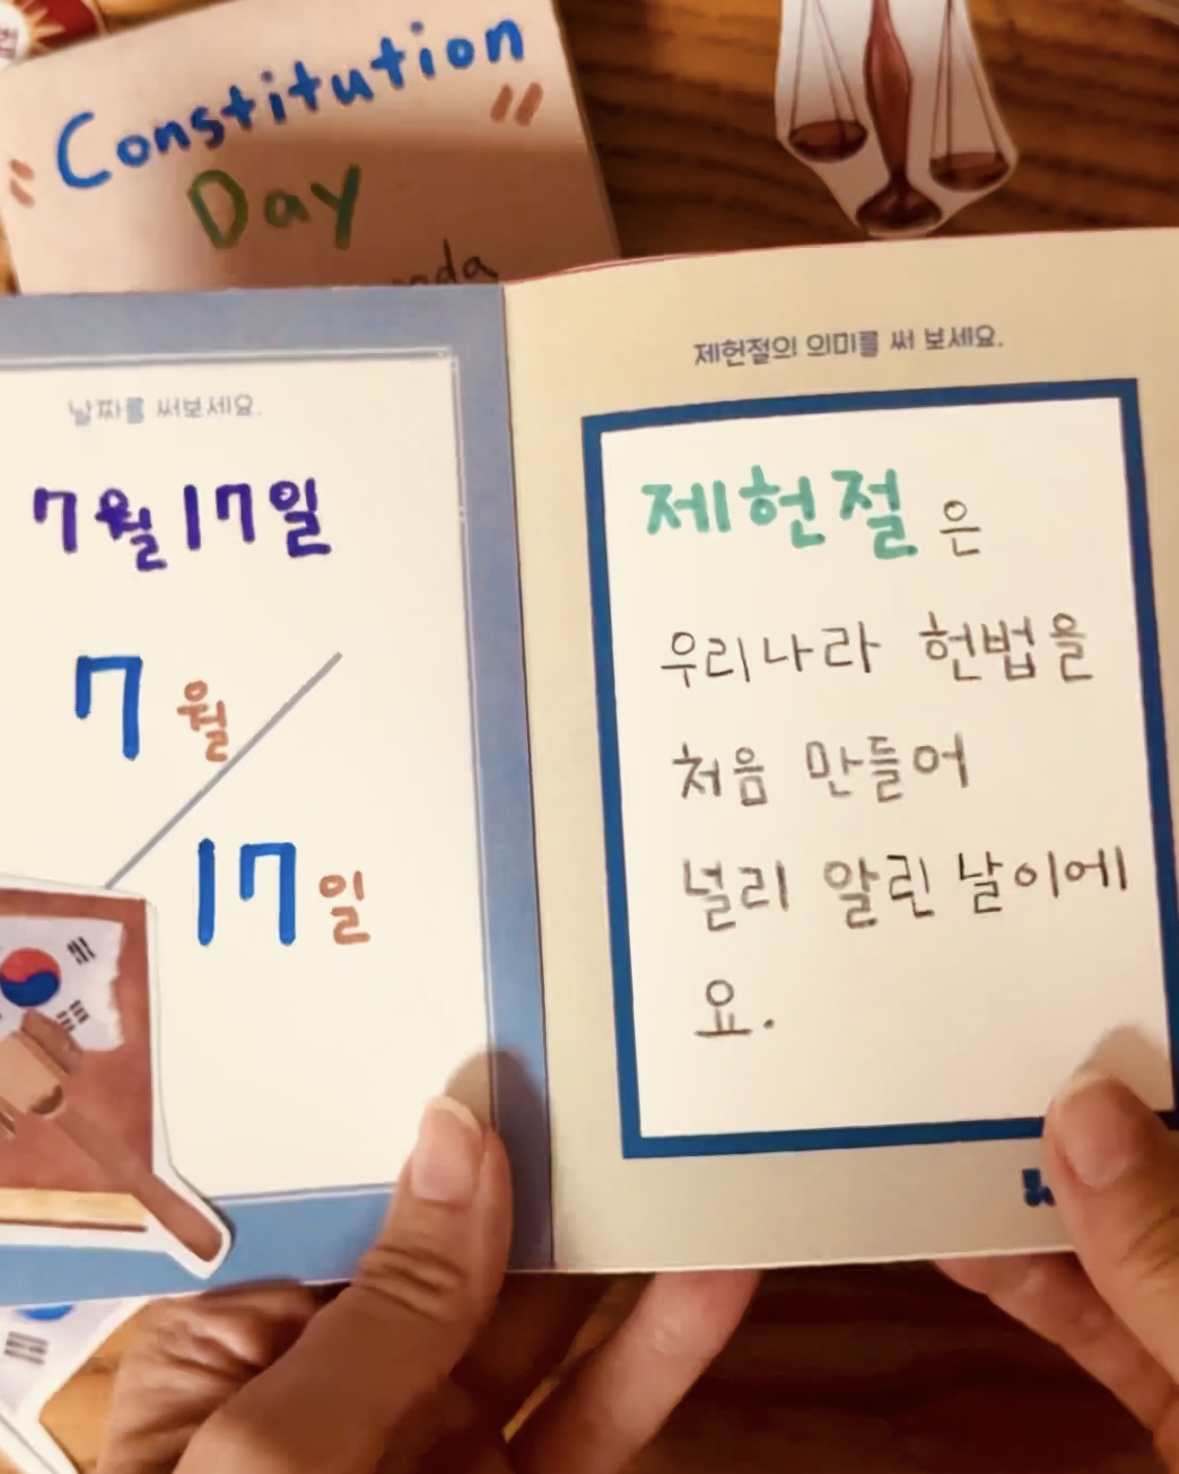 "Constitution
Day"
날짜를 써보세요.
7월17일
7월
17일
제헌절의 의미를 써 보세요.
제헌절은
우리나라 헌법을
처음 만들어
널리 알린 날이에
요.